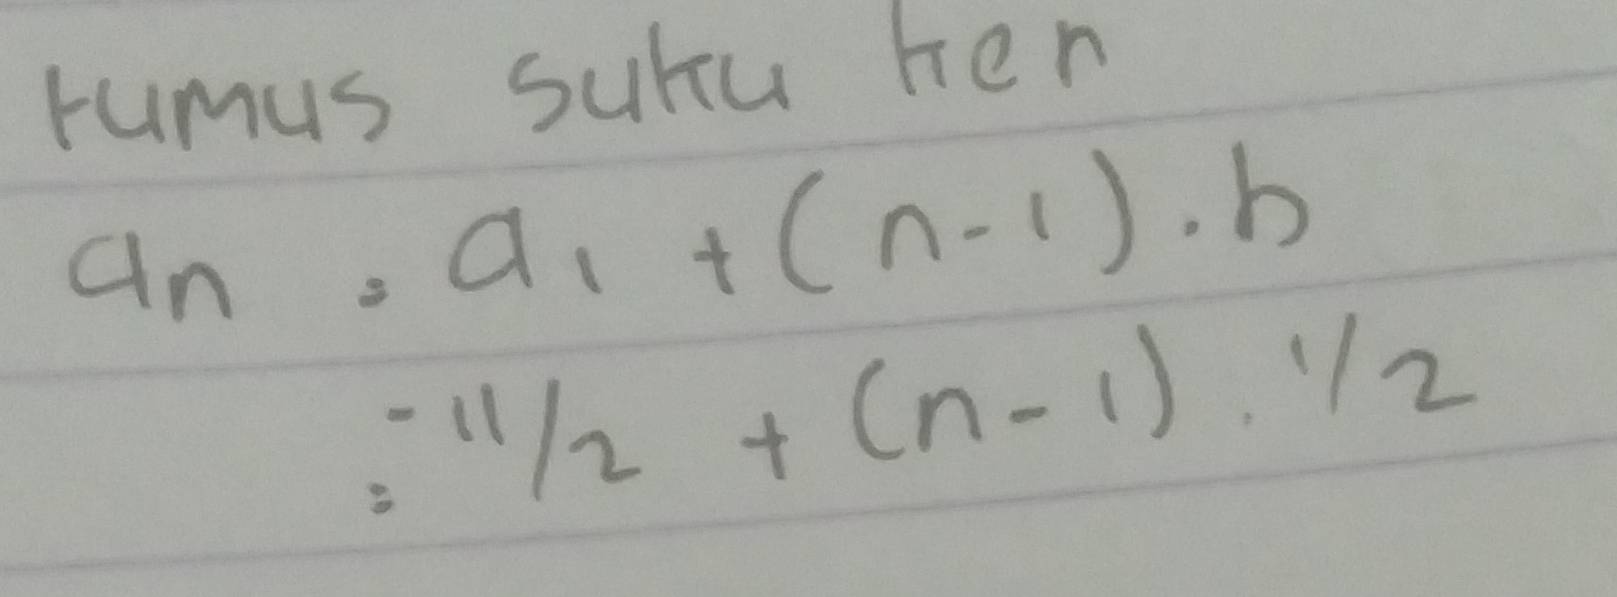 rumus suku ken
an = a1 + (n-1) . b
= -11/2 + (n-1) . 1/2